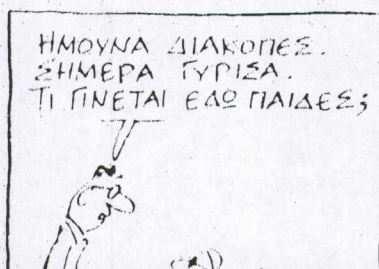 ΗΜΟΥΝΑ ΔΙΑΚΟΠΕΣ.
ΣΗΜΕΡΑ ΓΥΡΙΣΑ.
ΤΙ ΓΙΝΕΤΑΙ ΕΔΩ ΠΑΙΔΕΣ;